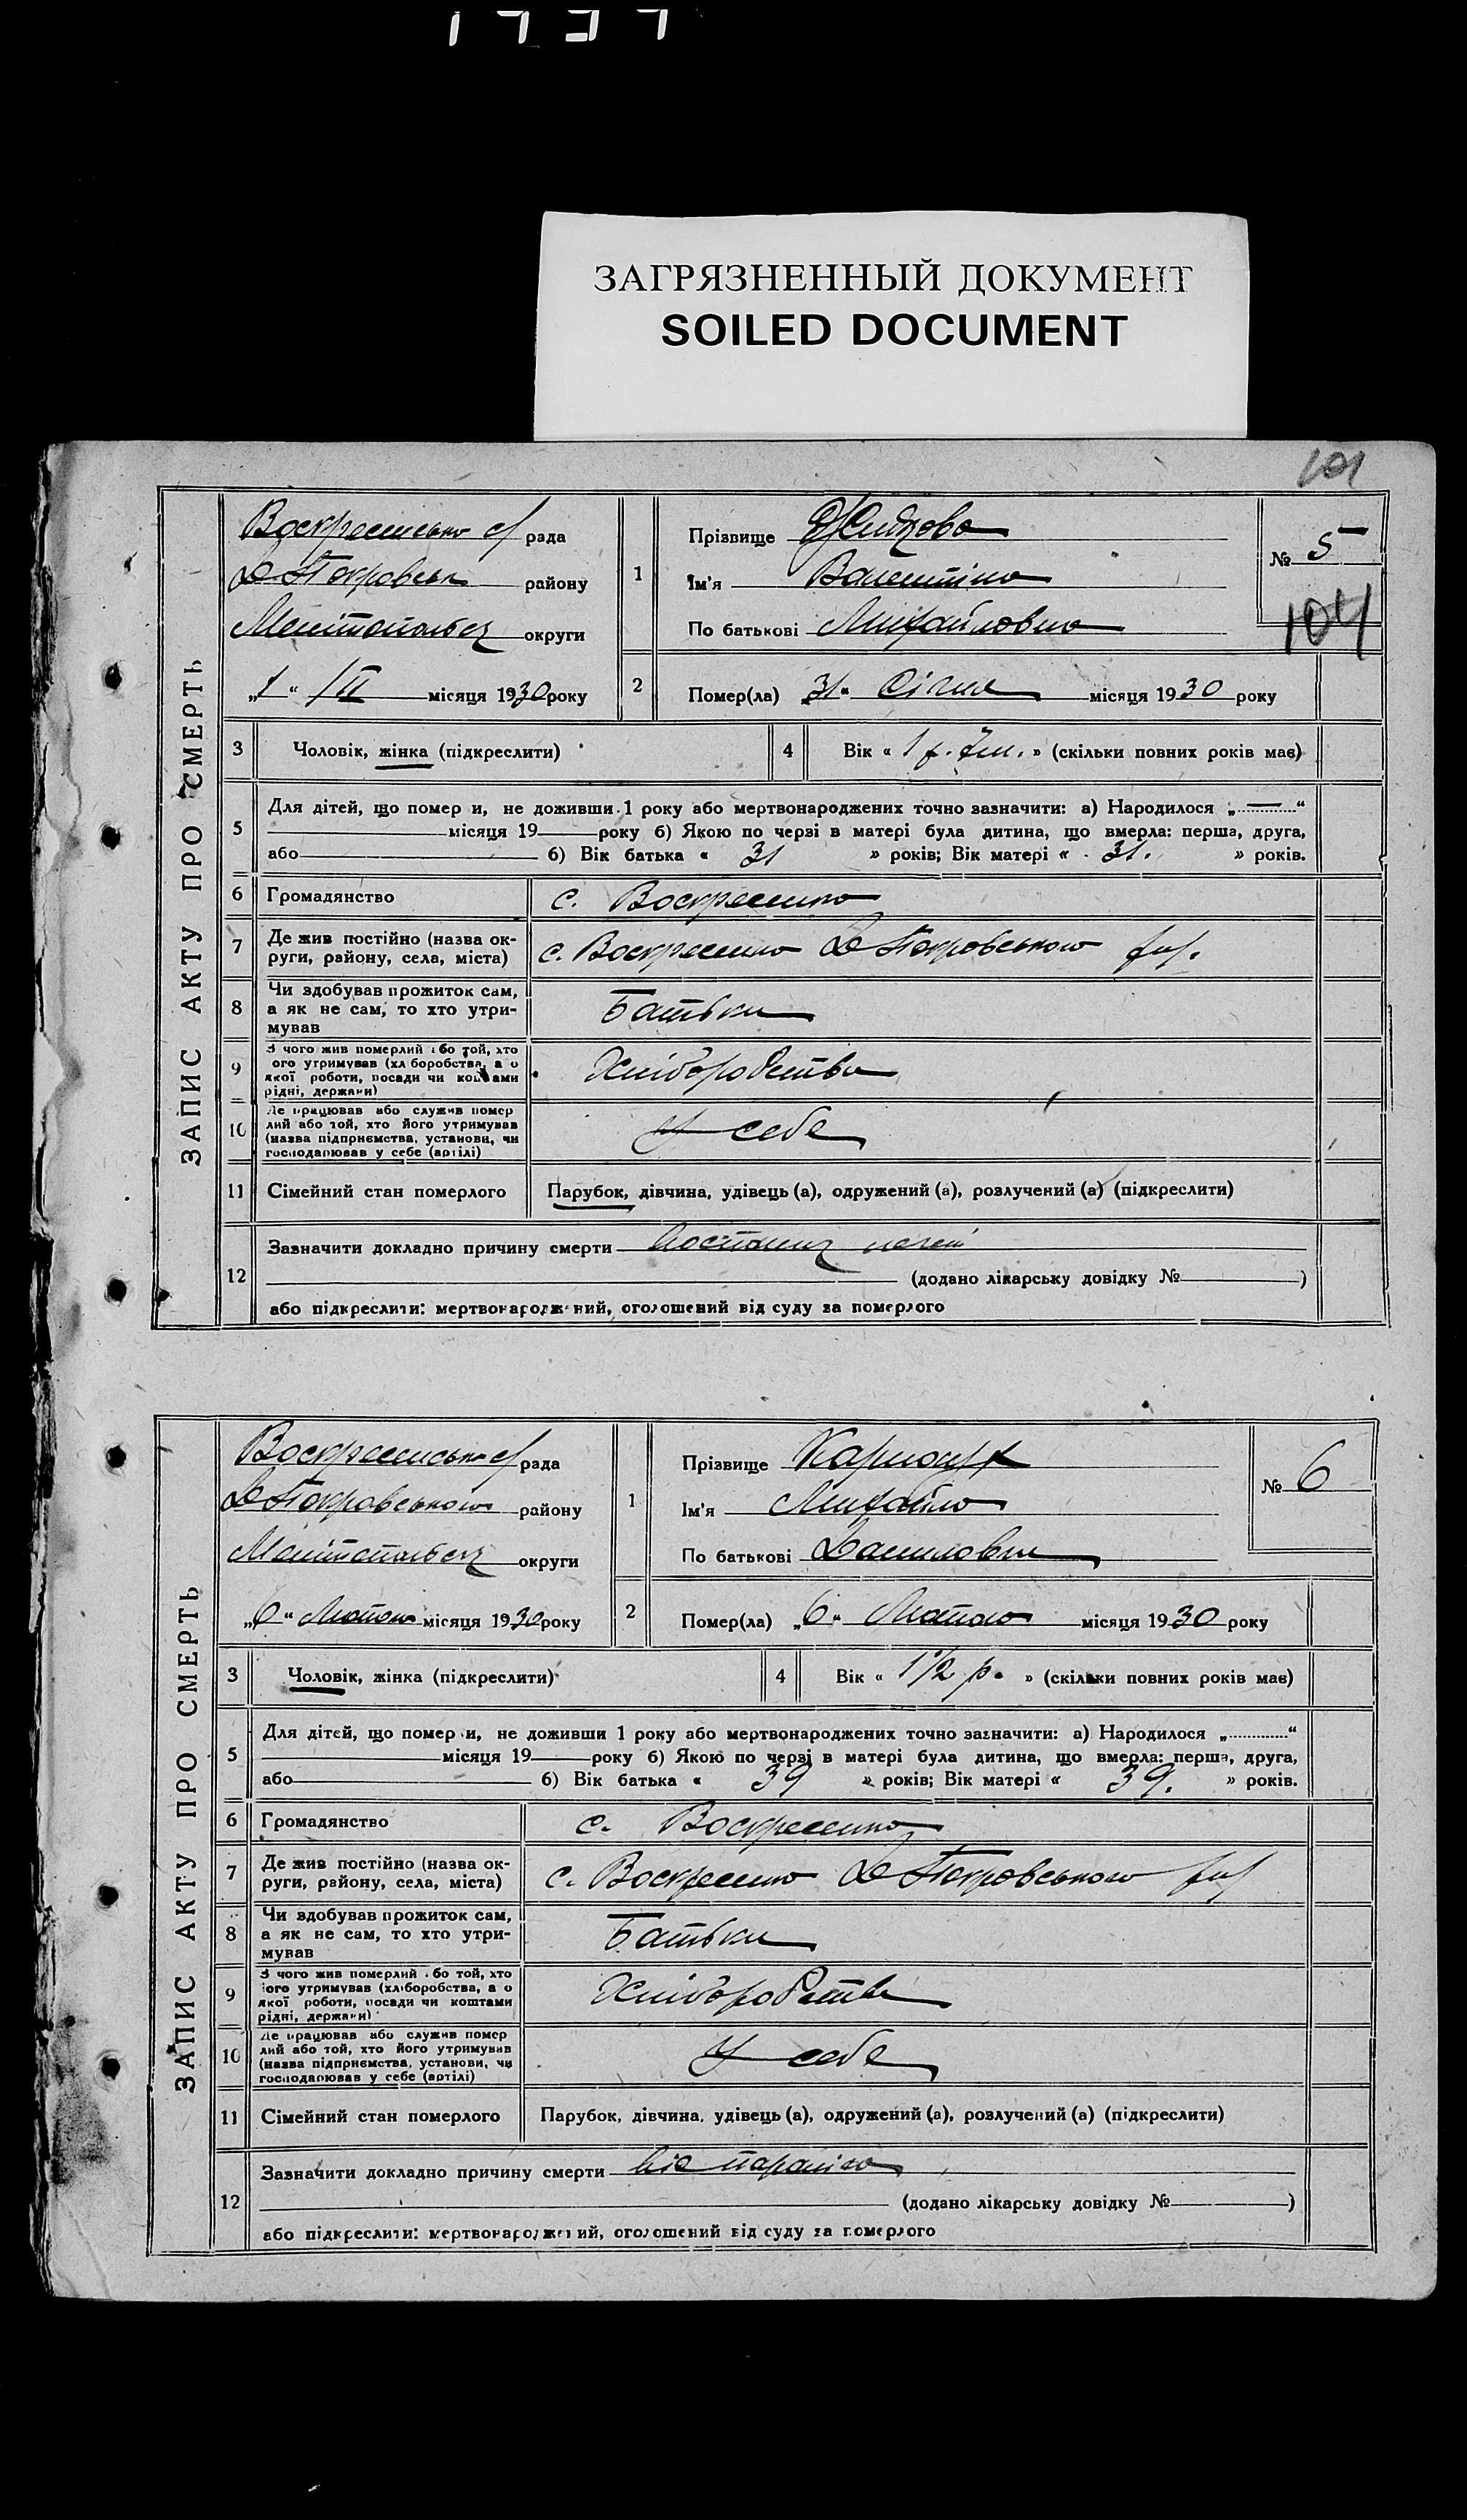 ЗАГРЯЗНЕННЫЙ ДОКУМЕНТ
SOILED DOCUMENT
101
ЗАПИС АКТУ ПРО СМЕРТЬ
рада
району
округи
„1“ /II місяця 1930 року
1
Прізвище
Ім'я Валентіна
По батькові Михайловна
№ 5
104
2
Помер(ла) „31“ Січня місяця 1930 року
3
Чоловік, жінка (підкреслити)
4
Вік « 1 р. 7 м. » (скільки повних років має)
5
Для дітей, що померли, не доживши 1 року або мертвонароджених точно зазначити: а) Народилося „ — “
місяця 19 року б) Якою по черзі в матері була дитина, що вмерла: перша, друга,
або б) Вік батька « 31 » років; Вік матері « 31. » років.
6
Громадянство
с. Воскресенка
7
Де жив постійно (назва ок-
руги, району, села, міста)
с. Воскресенка В Токровського рну.
8
Чи здобував прожиток сам,
а як не сам, то хто утри-
мував
Батьки
9
З чого жив померлий або той, хто
його утримував (хліборобства, або
якої роботи, посади чи коштами
рідні, держави)
Хліборобства
10
Де працював або служив помер
лий або той, хто його утримував
(назва підприємства, установи, чи
господарював у себе (артілі)
У себе
11
Сімейний стан померлого
Парубок, дівчина, удівець (а), одружений (а), розлучений (а) (підкреслити)
12
Зазначити докладно причину смерти
(додано лікарську довідку № )
або підкреслити: мертвонароджений, оголошений від суду за померлого
ЗАПИС АКТУ ПРО СМЕРТЬ
рада
району
округи
„6“ Лютого місяця 1930 року
1
Прізвище
Ім'я Михайло
По батькові
№ 6
2
Помер(ла) „6“ Лютого місяця 1930 року
3
Чоловік, жінка (підкреслити)
4
Вік « 1 1/2 р. » (скільки повних років має)
5
Для дітей, що померли, не доживши 1 року або мертвонароджених точно зазначити: а) Народилося „ “
місяця 19 року б) Якою по черзі в матері була дитина, що вмерла: перша, друга,
або б) Вік батька « 39 » років; Вік матері « 39. » років.
6
Громадянство
с. Воскресенка
7
Де жив постійно (назва ок-
руги, району, села, міста)
с. Воскресенка
8
Чи здобував прожиток сам,
а як не сам, то хто утри-
мував
Батьки
9
З чого жив померлий або той, хто
його утримував (хліборобства, або
якої роботи, посади чи коштами
рідні, держави)
Хліборобства
10
Де працював або служив помер
лий або той, хто його утримував
(назва підприємства, установи, чи
господарював у себе (артілі)
У себе
11
Сімейний стан померлого
Парубок, дівчина, удівець (а), одружений (а), розлучений (а) (підкреслити)
12
Зазначити докладно причину смерти
(додано лікарську довідку № )
або підкреслити: мертвонароджений, оголошений від суду за померлого